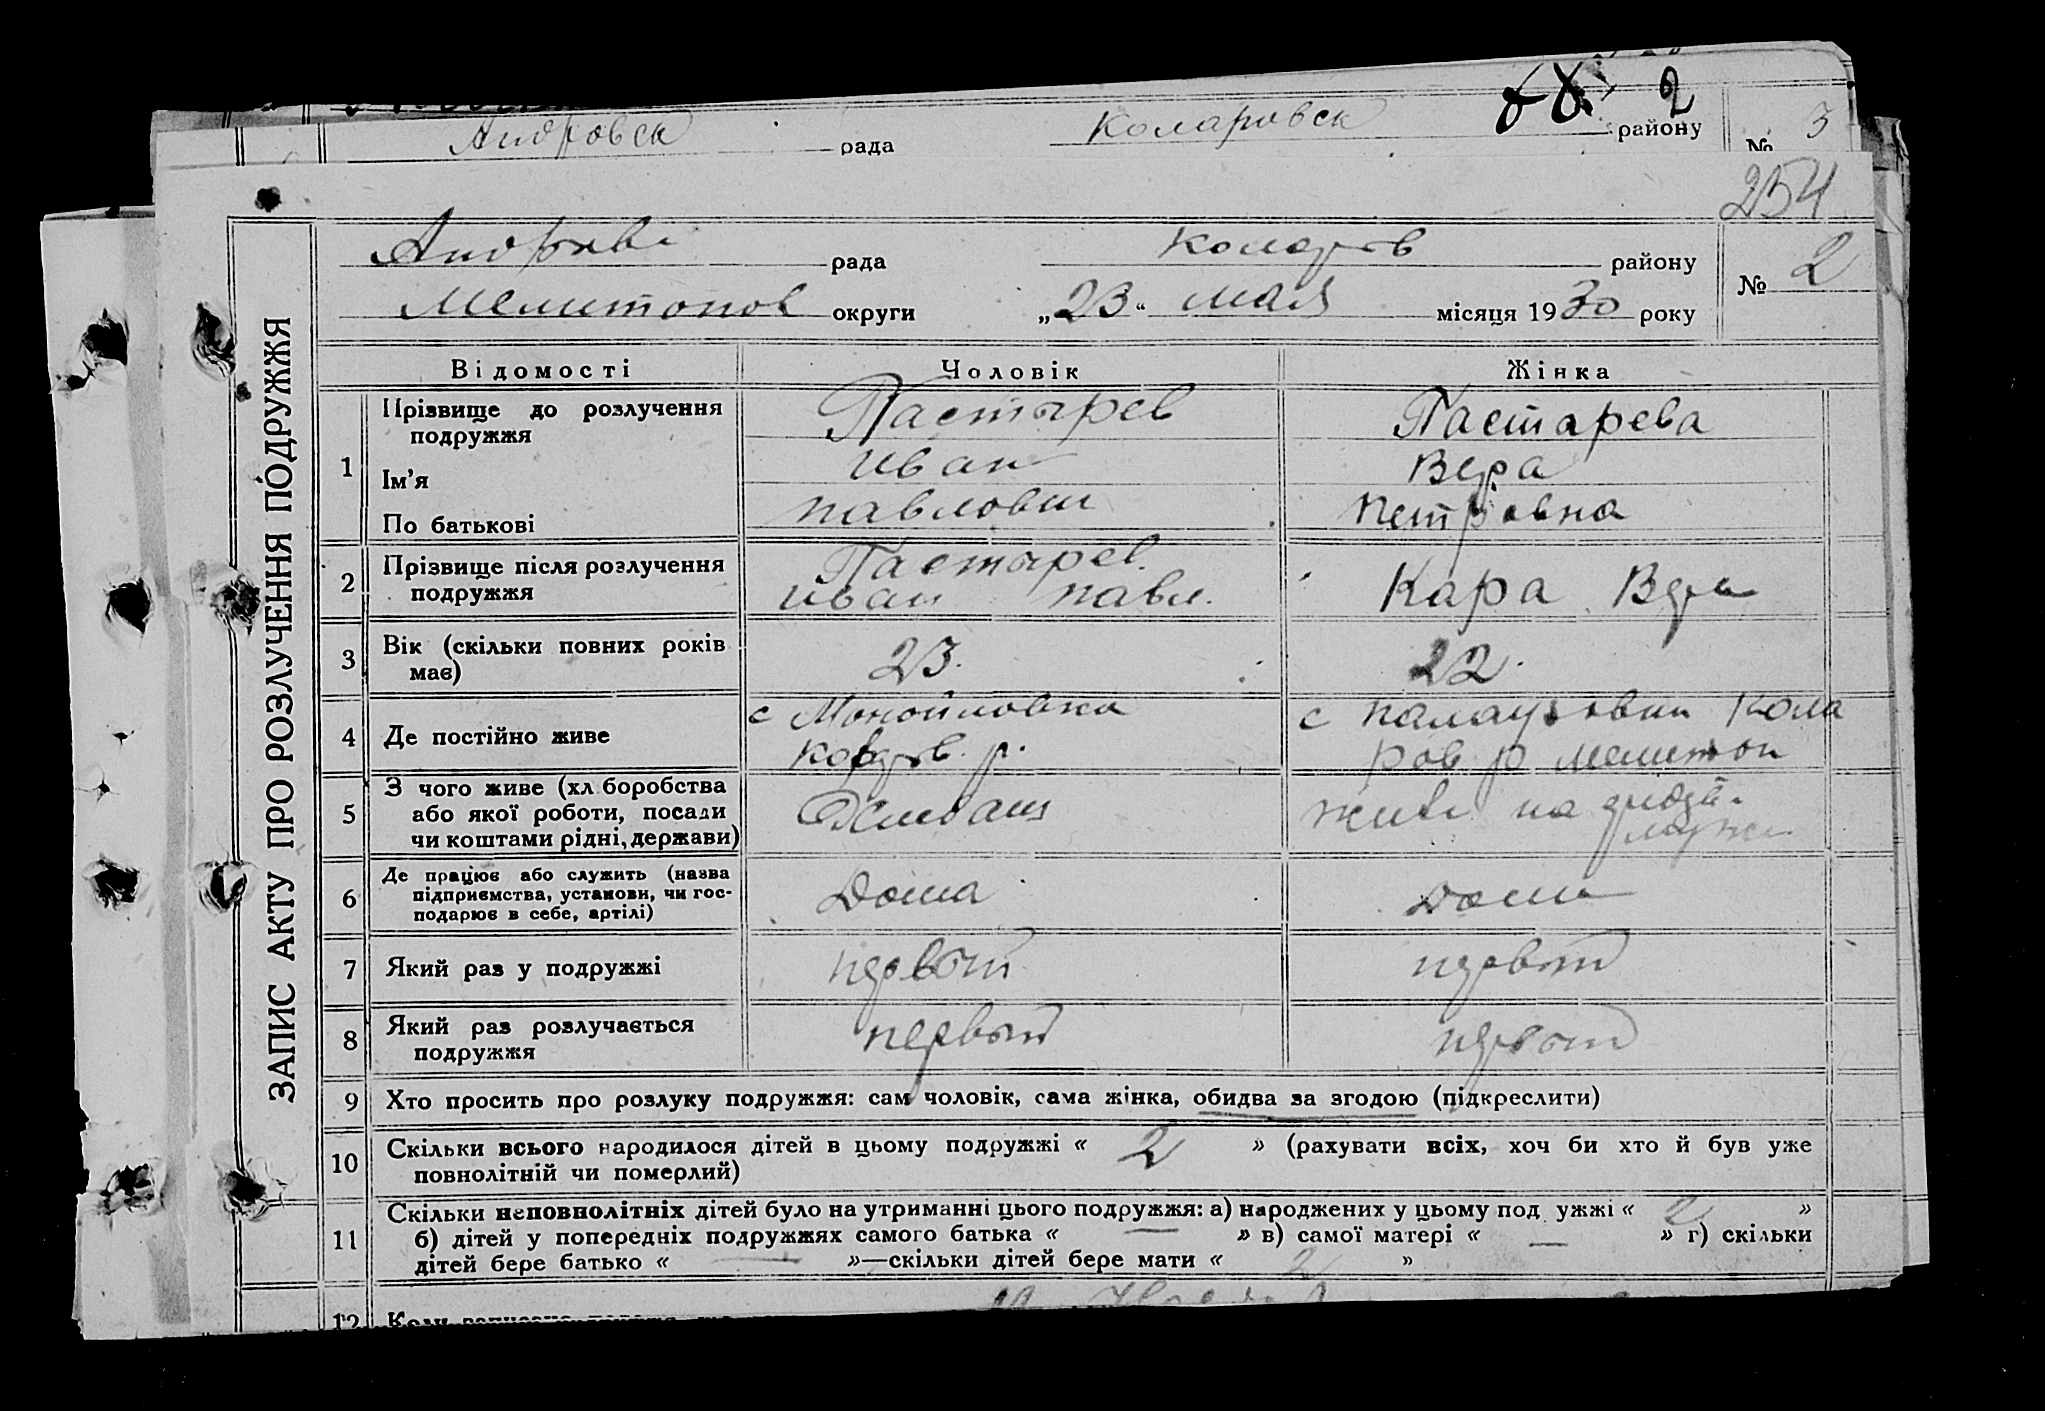 Андровск рада Коларовск району № 3
2
254
рада Коларов району № 2
Мелитопов округи „23“ мая місяця 1930 року
ЗАПИС АКТУ ПРО РОЗЛУЧЕННЯ ПОДРУЖЖЯ
Відомості Чоловік Жінка
1 Прізвище до розлучення подружжя Пастырев Пастарева
Ім'я Иван Вера
По батькові Павлович Петровна
2 Прізвище після розлучення Пастырев Кара Вера
подружжя Иван Павл.
3 Вік (скільки повних років має) 23. 22.
4 Де постійно живе с Манойловка с Кола
р. ров р Мелитоп
5 З чого живе (хл боробства
або якої роботи, посади живе на
чи коштами рідні, держави)
6 Де працює або служить (назва
підприємства, установи, чи гос- Дома Дома
подарює в себе, артілі)
7 Який раз у подружжі первый первый
8 Який раз розлучається первый первый
подружжя
9 Хто просить про розлуку подружжя: сам чоловік, сама жінка, обидва за згодою (підкреслити)
10 Скільки всього народилося дітей в цьому подружжі « 2 » (рахувати всіх, хоч би хто й був уже
повнолітній чи померлий)
11 Скільки неповнолітніх дітей було на утриманні цього подружжя: а) народжених у цьому под ужжі « 2 »
б) дітей у попередніх подружжях самого батька « — » в) самої матері « — » г) скільки
дітей бере батько « — »—скільки дітей бере мати « 2 »
12